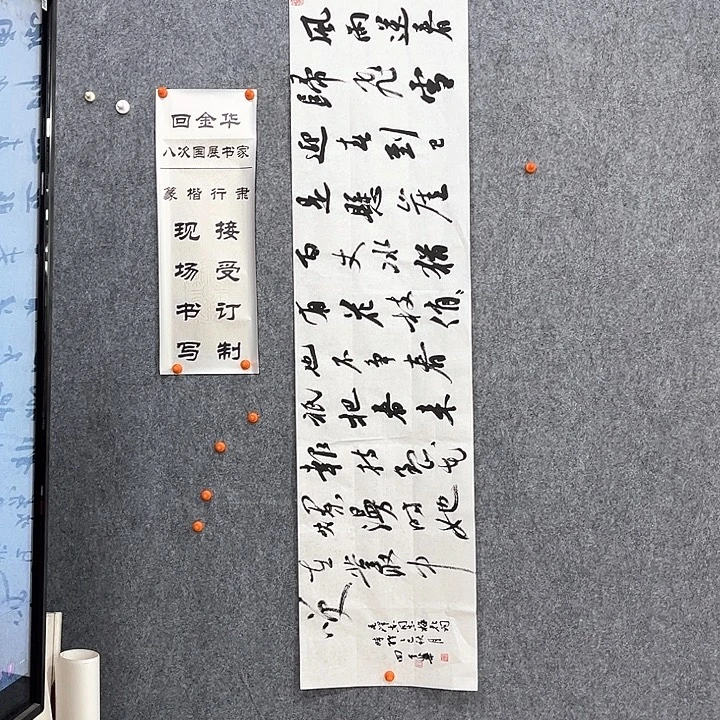 回金华
八次国展书家
篆楷行隶
现场书写
接受订制
風雨送春
歸飛雪
迎春到已
是懸崖
百丈冰猶
有花枝俏
也不争春
祇把春来
報待到山花
爛漫时她
在叢中
笑